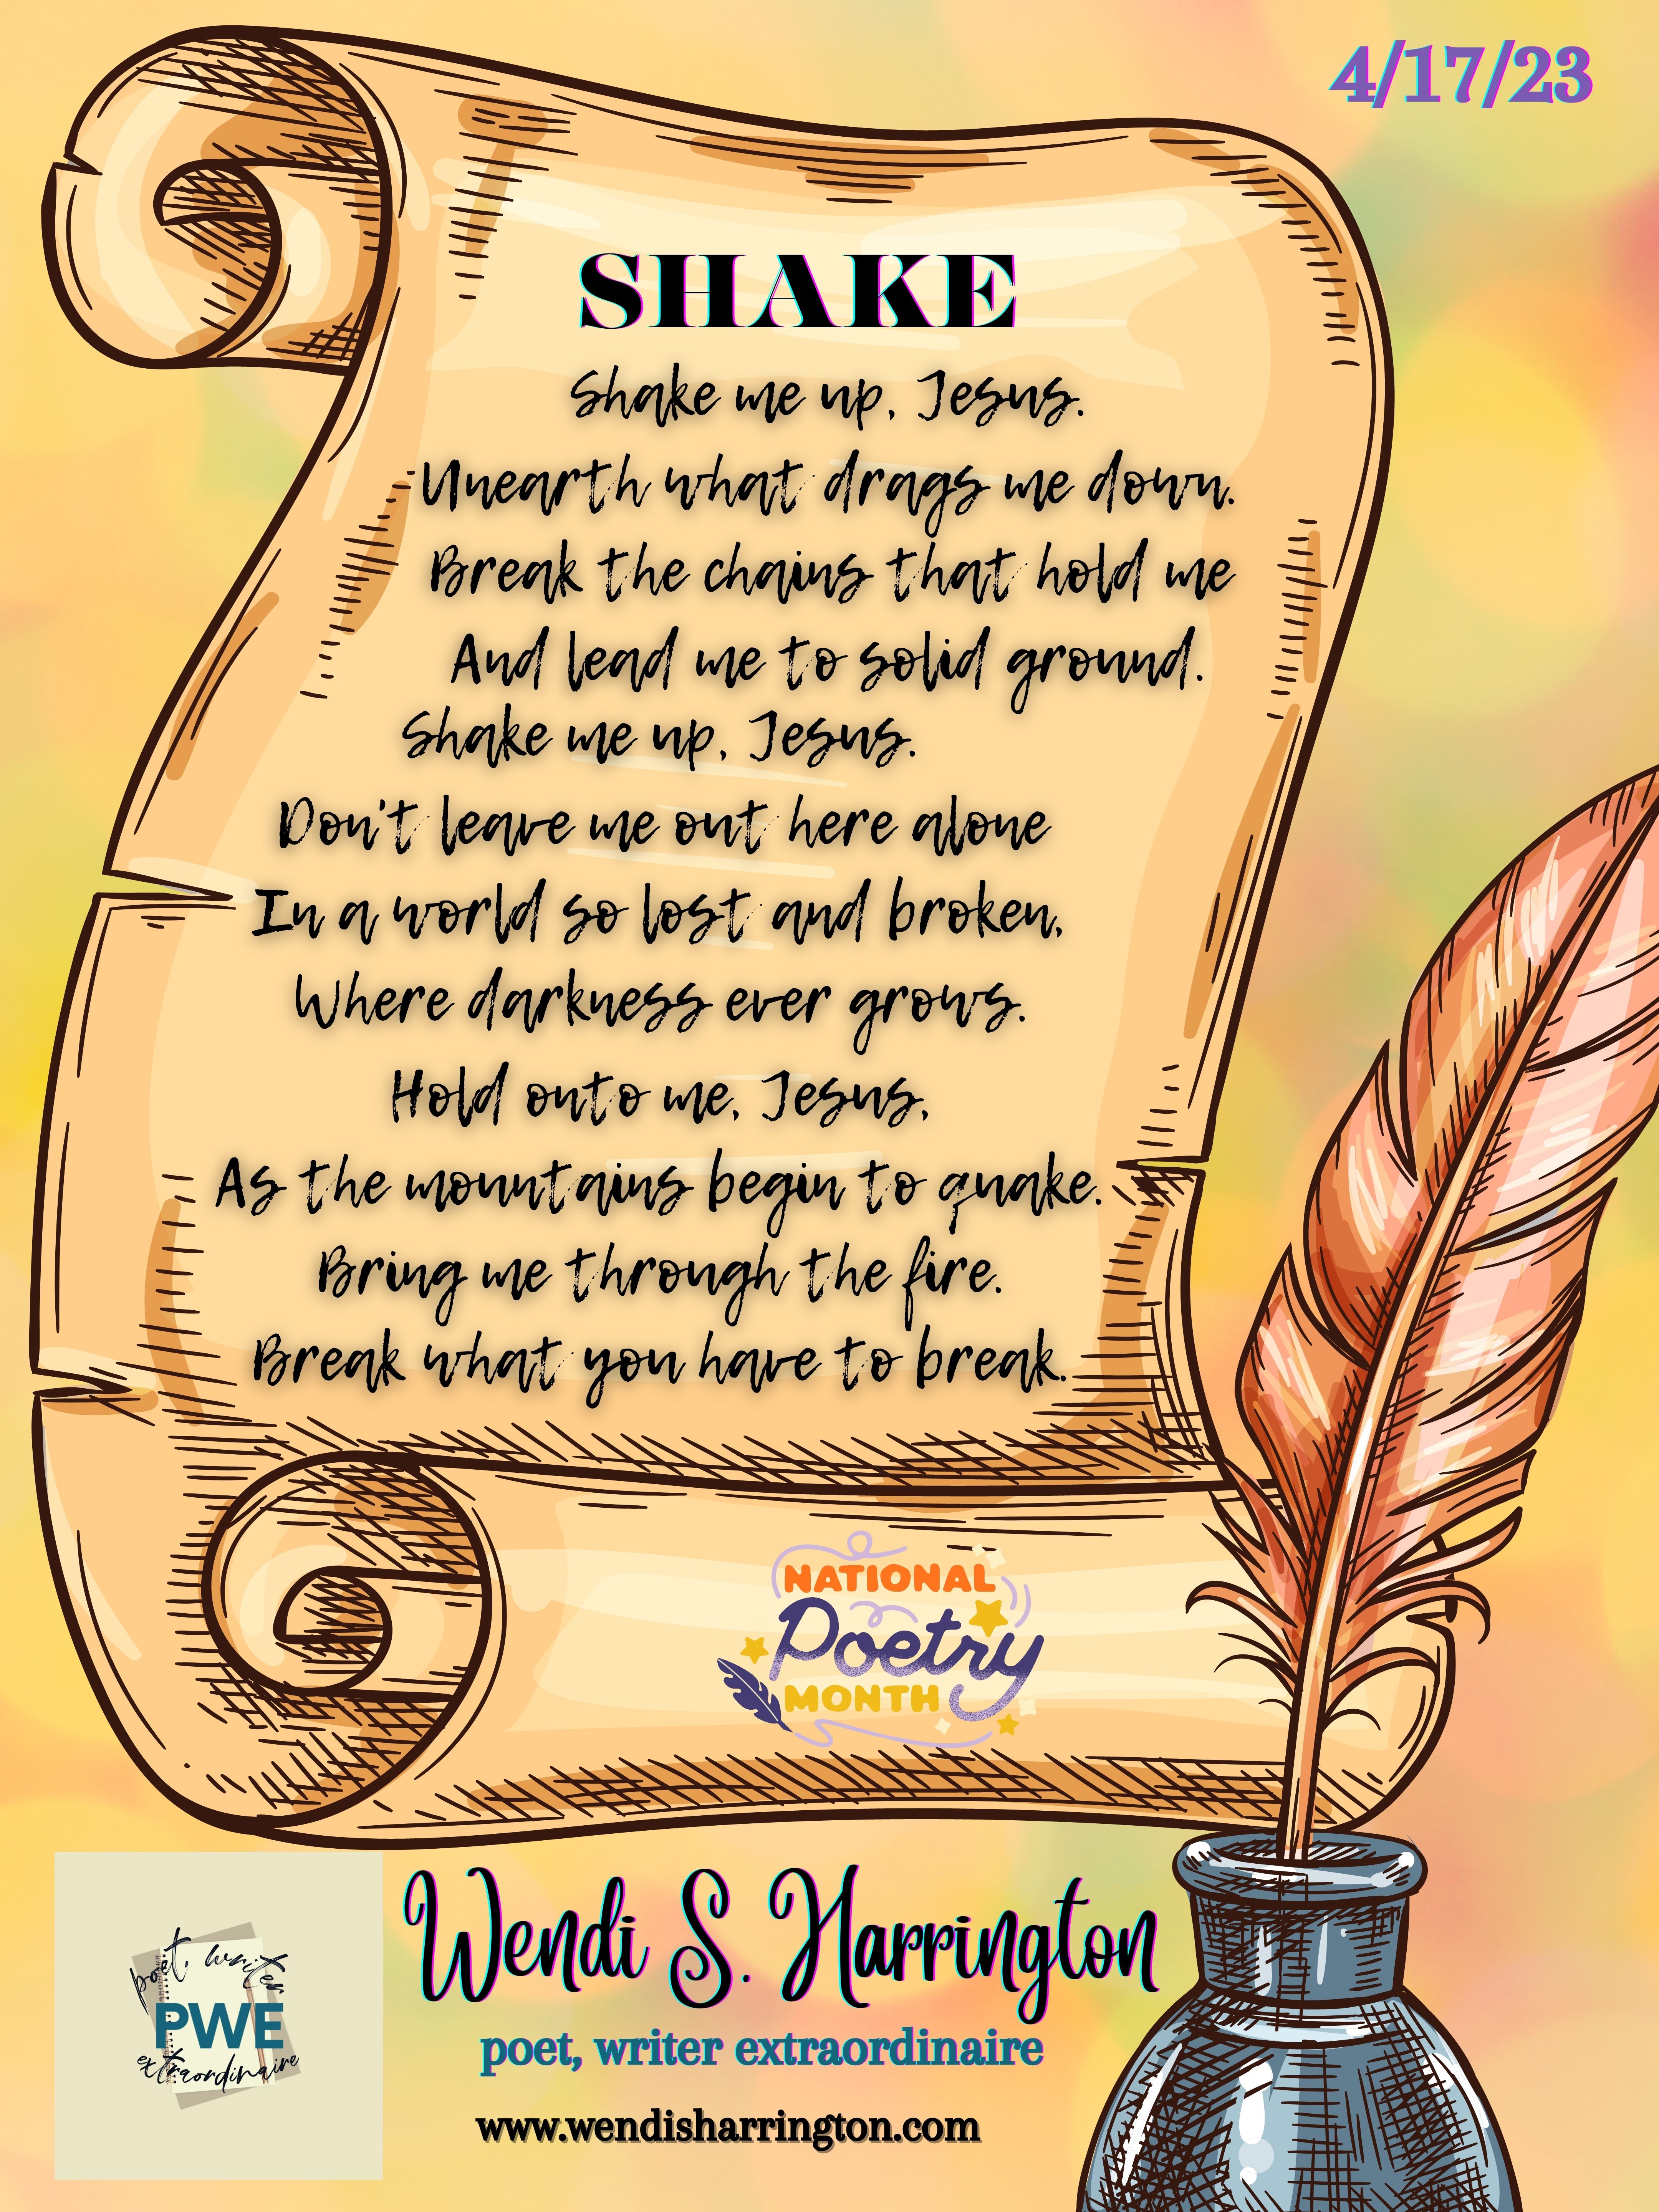 4/17/23
SHAKE
Shake me up, Jesus.
Unearth what drags me down.
Break the chains that hold me
And lead me to solid ground.
Shake me up, Jesus.
Don't leave me out here alone
In a world so lost and broken,
Where darkness ever grows.
Hold onto me, Jesus,
As the mountains begin to quake.
Bring me through the fire.
Break what you have to break.
NATIONAL
Poetry
MONTH
poet, writer
PWE
extraordinaire
Wendi S. Harrington
poet, writer extraordinaire
www.wendisharrington.com